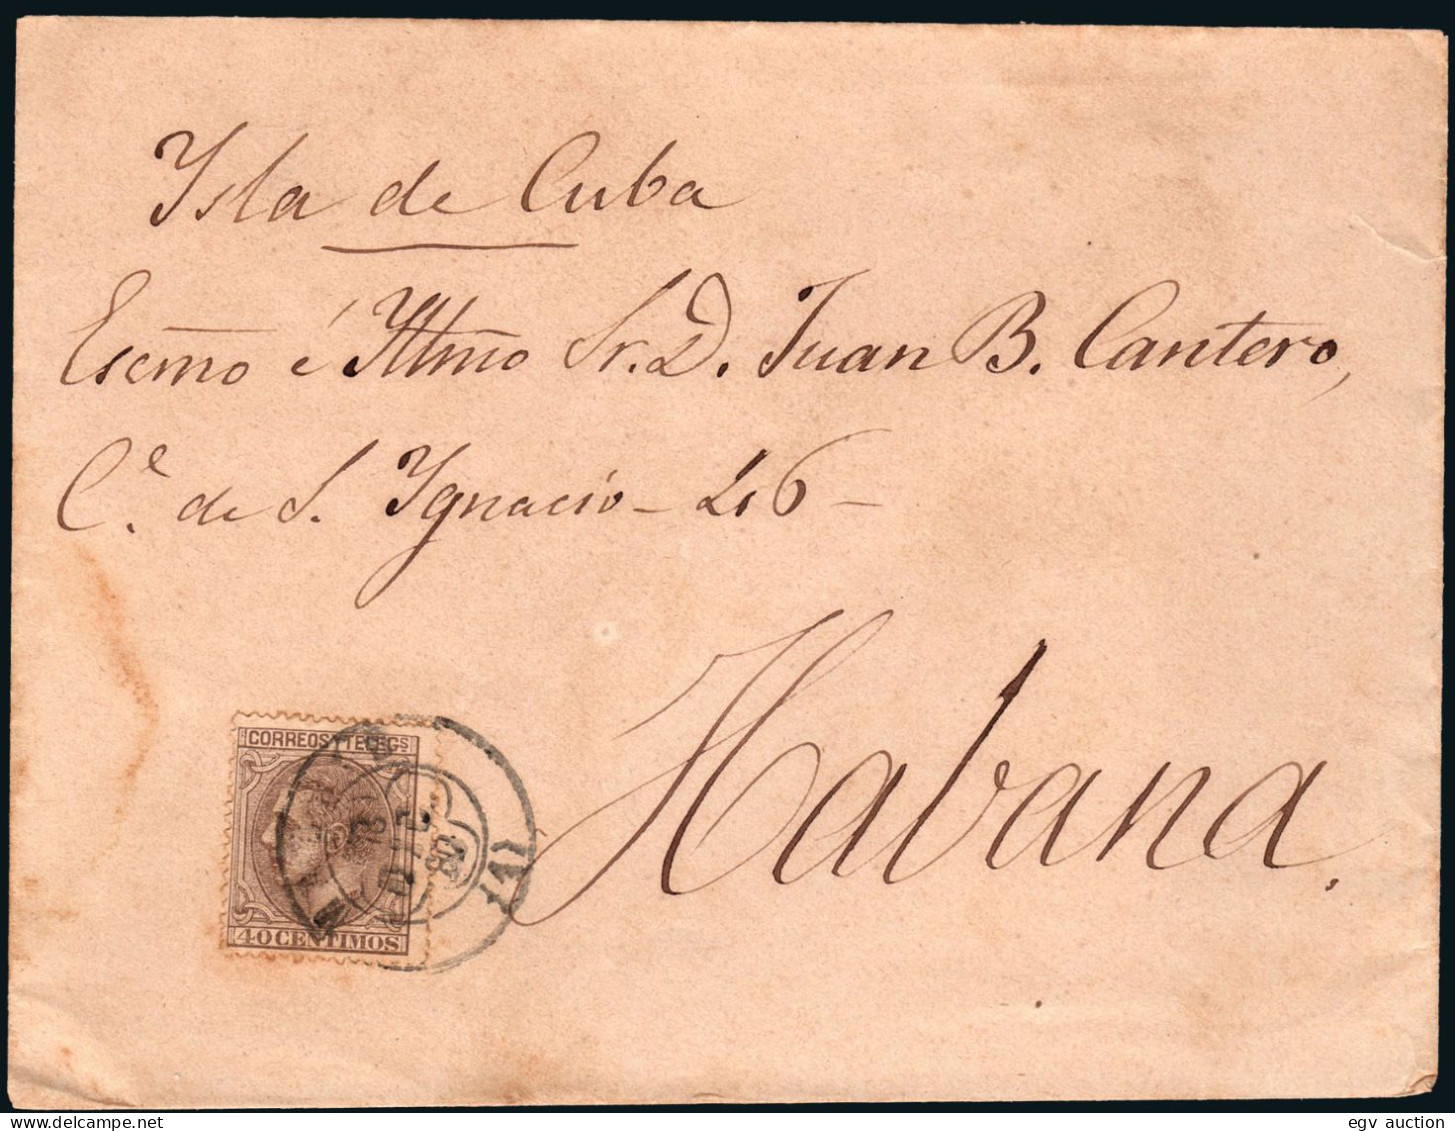 Isla de Cuba
Escmo é Yltmo Sr. D. Juan B. Cantero,
C.e de S. Ygnacio - 46 -
Habana.
CORREOS Y TELEGS
40 CENTIMOS
(1)
egv auction